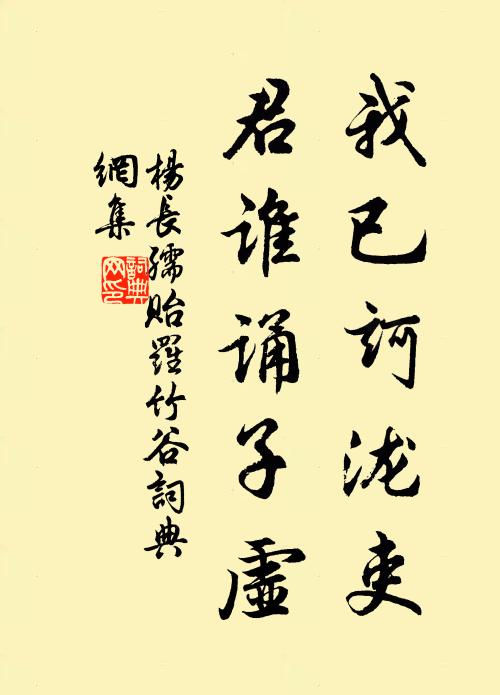 我已訶泷吏
君谁诵子虚
楊長孺貽羅竹谷詞典
網集
詞典
网印